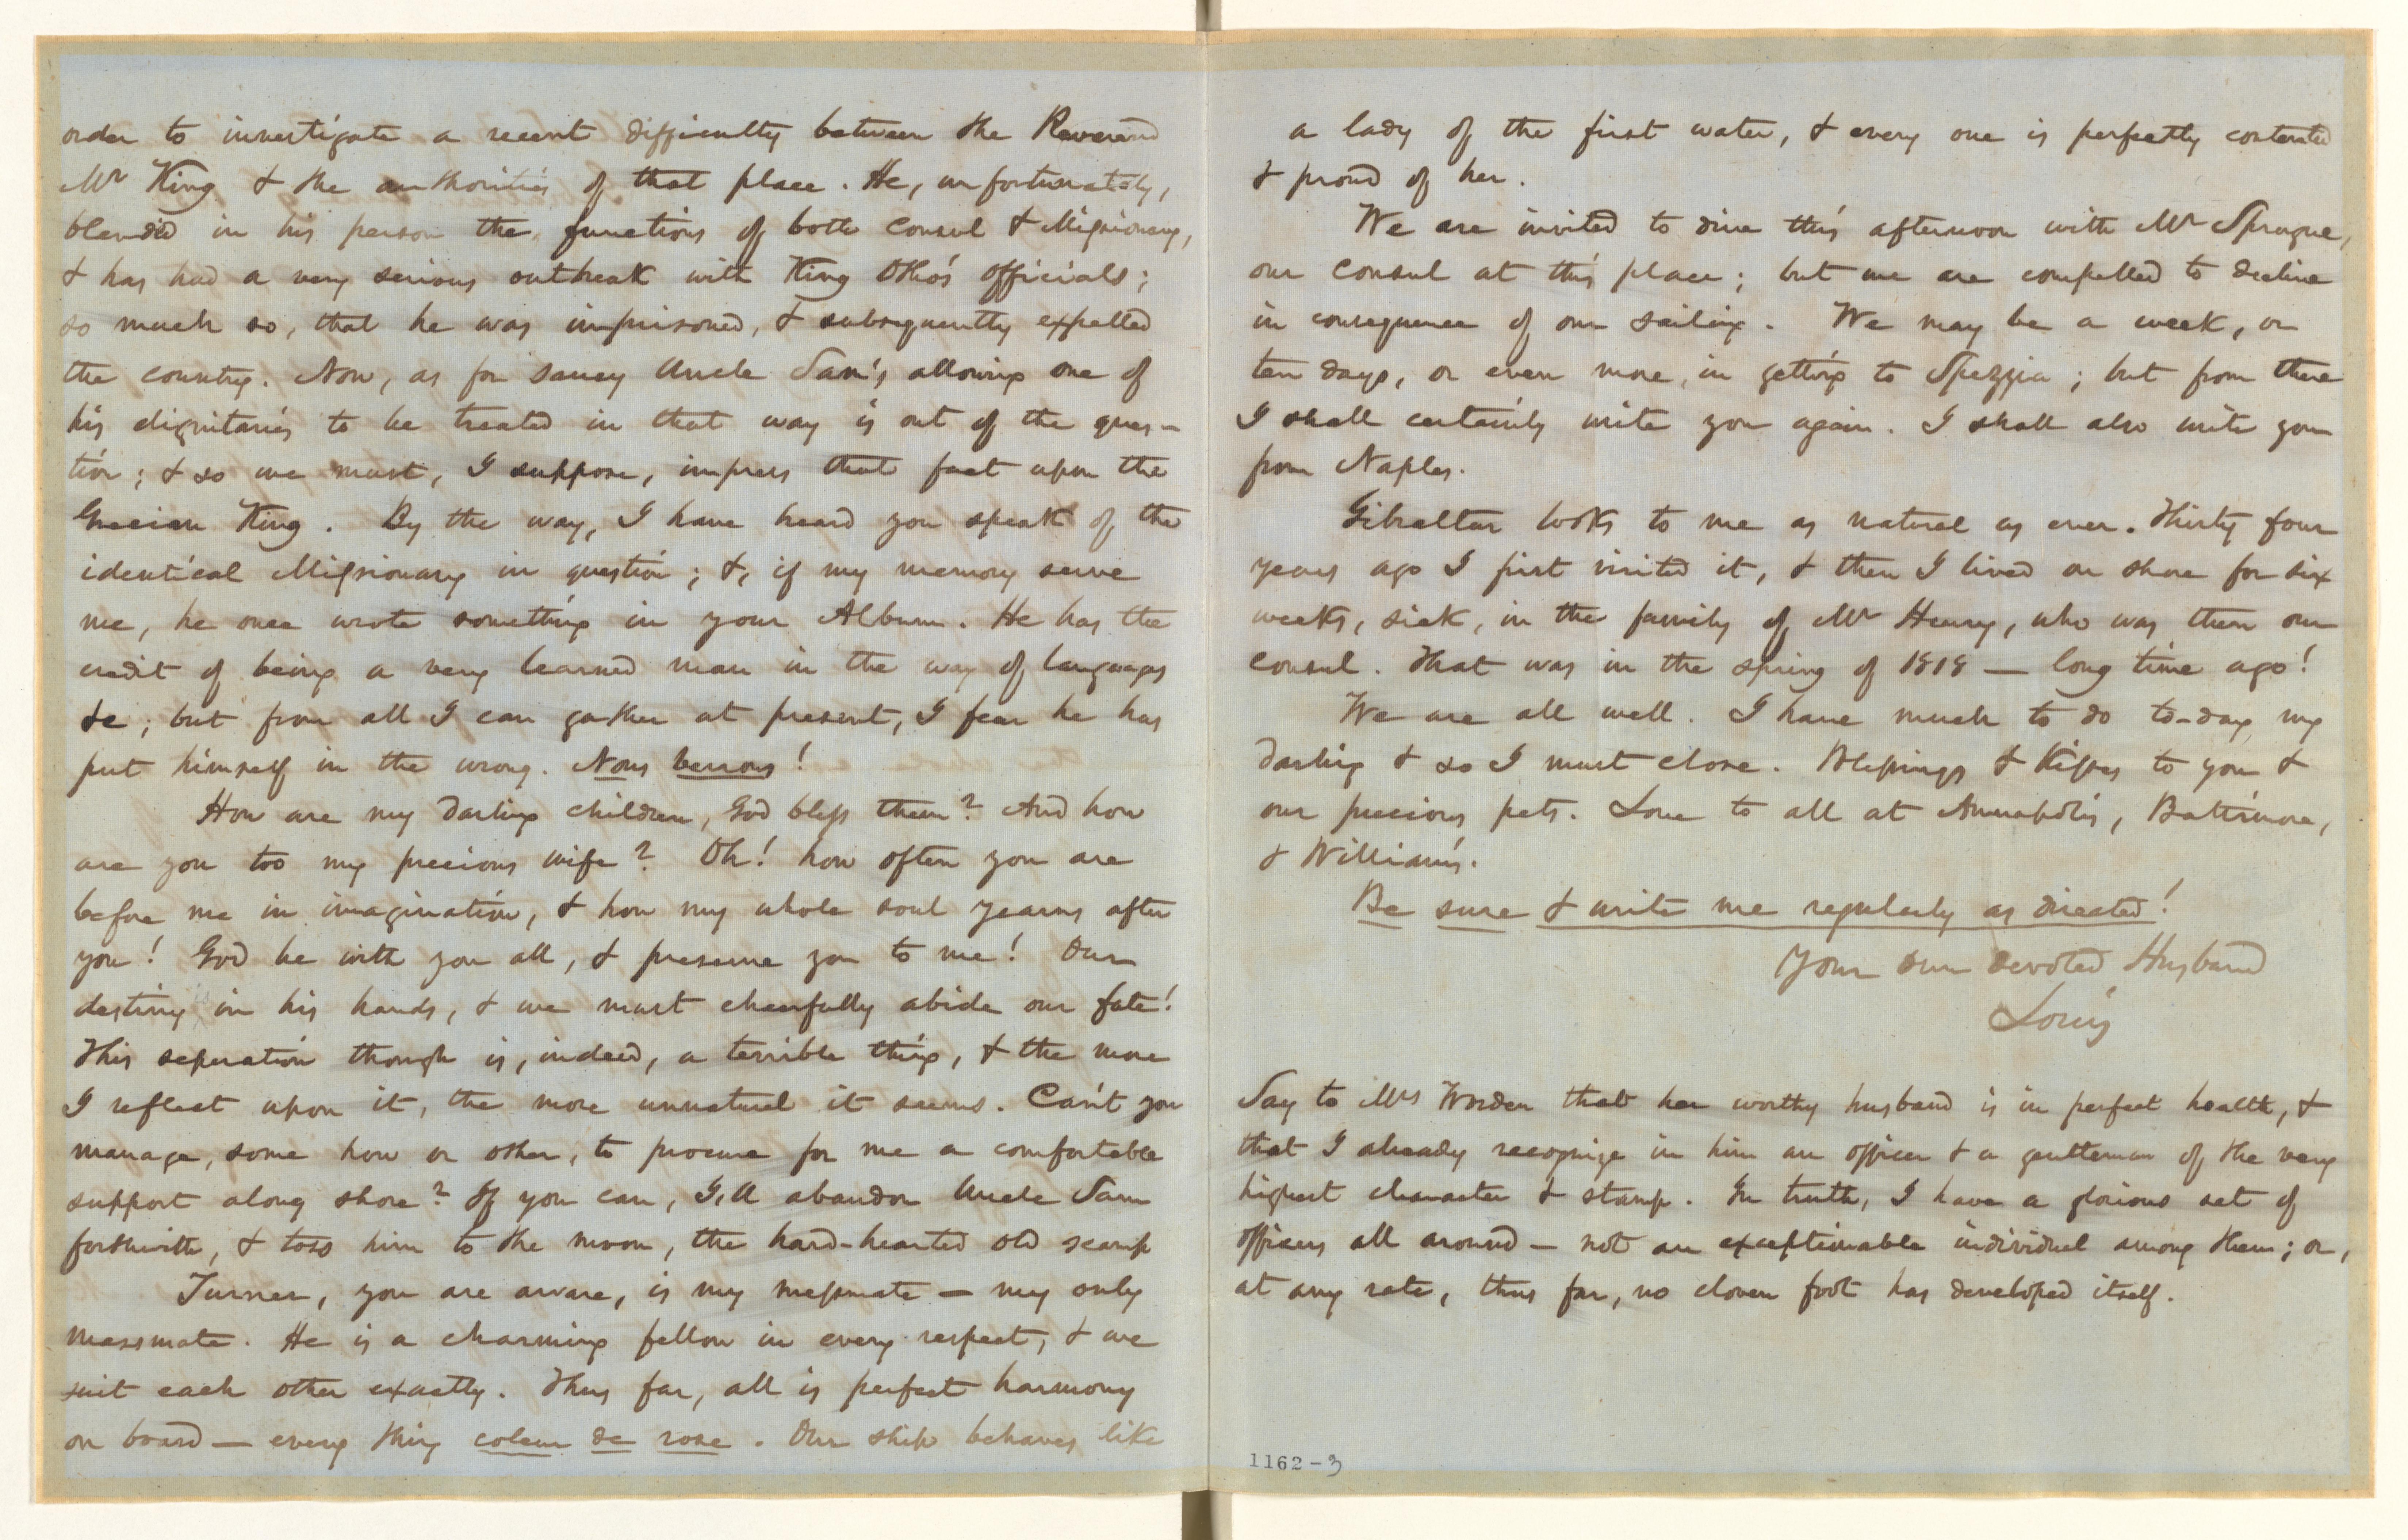 order to investigate a recent difficulty between the Reverend
Mr King & the authorities of that place. He, unfortunately,
blended in his person the functions of both Consul & Missionary,
& has had a very serious outbreak with King Otho's officials;
so much so, that he was imprisoned, & subsequently expelled
the country. Now, as for saucy Uncle Sam's allowing one of
his dignitaries to be treated in that way is out of the ques-
tion; & so we must, I suppose, impress that fact upon the
Grecian King. By the way, I have heard you speak of the
identical Missionary in question; &, if my memory serve
me, he once wrote something in your Album. He has the
credit of being a very learned man in the way of languages
&c; but from all I can gather at present, I fear he has
put himself in the wrong. Nous verrons!
How are my darling children, God bless them? And how
are you too my precious wife? Oh! how often you are
before me in imagination, & how my whole soul yearns after
you! God be with you all, & preserve you to me! Our
destiny in his hands, & we must cheerfully abide our fate!
This seperation though is, indeed, a terrible thing, & the more
I reflect upon it, the more unnatural it seems. Can't you
manage, some how or other, to procure for me a comfortable
support along shore? If you can, I'll abandon Uncle Sam
forthwith, & toss him to the moon, the hard-hearted old scamp
Turner, you are aware, is my messmate — my only
messmate. He is a charming fellow in every respect, & we
suit each other exactly. Thus far, all is perfect harmony
on board — every thing coleur de rose. Our ship behaves like
a lady of the first water, & every one is perfectly contented
& proud of her.
We are invited to dine this afternoon with Mr Sprague,
our Consul at this place; but we are compelled to decline
in consequence of our sailing. We may be a week, or
ten days, or even more, in getting to Spezzia; but from there
I shall certainly write you again. I shall also write you
from Naples.
Gibraltar looks to me as natural as ever. Thirty four
years ago I first visited it, & then I lived on shore for six
weeks, sick, in the family of Mr Henry, who was then our
Consul. That was in the spring of 1818 — long time ago!
We are all well. I have much to do to-day, my
darling & so I must close. Blessings & Kisses to you &
our precious pets. Love to all at Annapolis, Baltimore,
& William's.
Be sure & write me regularly as directed!
Your own devoted Husband
Louis
Say to Mrs Worden that her worthy husband is in perfect health, &
that I already recognize in him an officer & a gentleman of the very
highest character & stamp. In truth, I have a glorious set of
officers all around — not an exceptionable individual among them; or,
at any rate, thus far, no cloven foot has developed itself.
1162-3